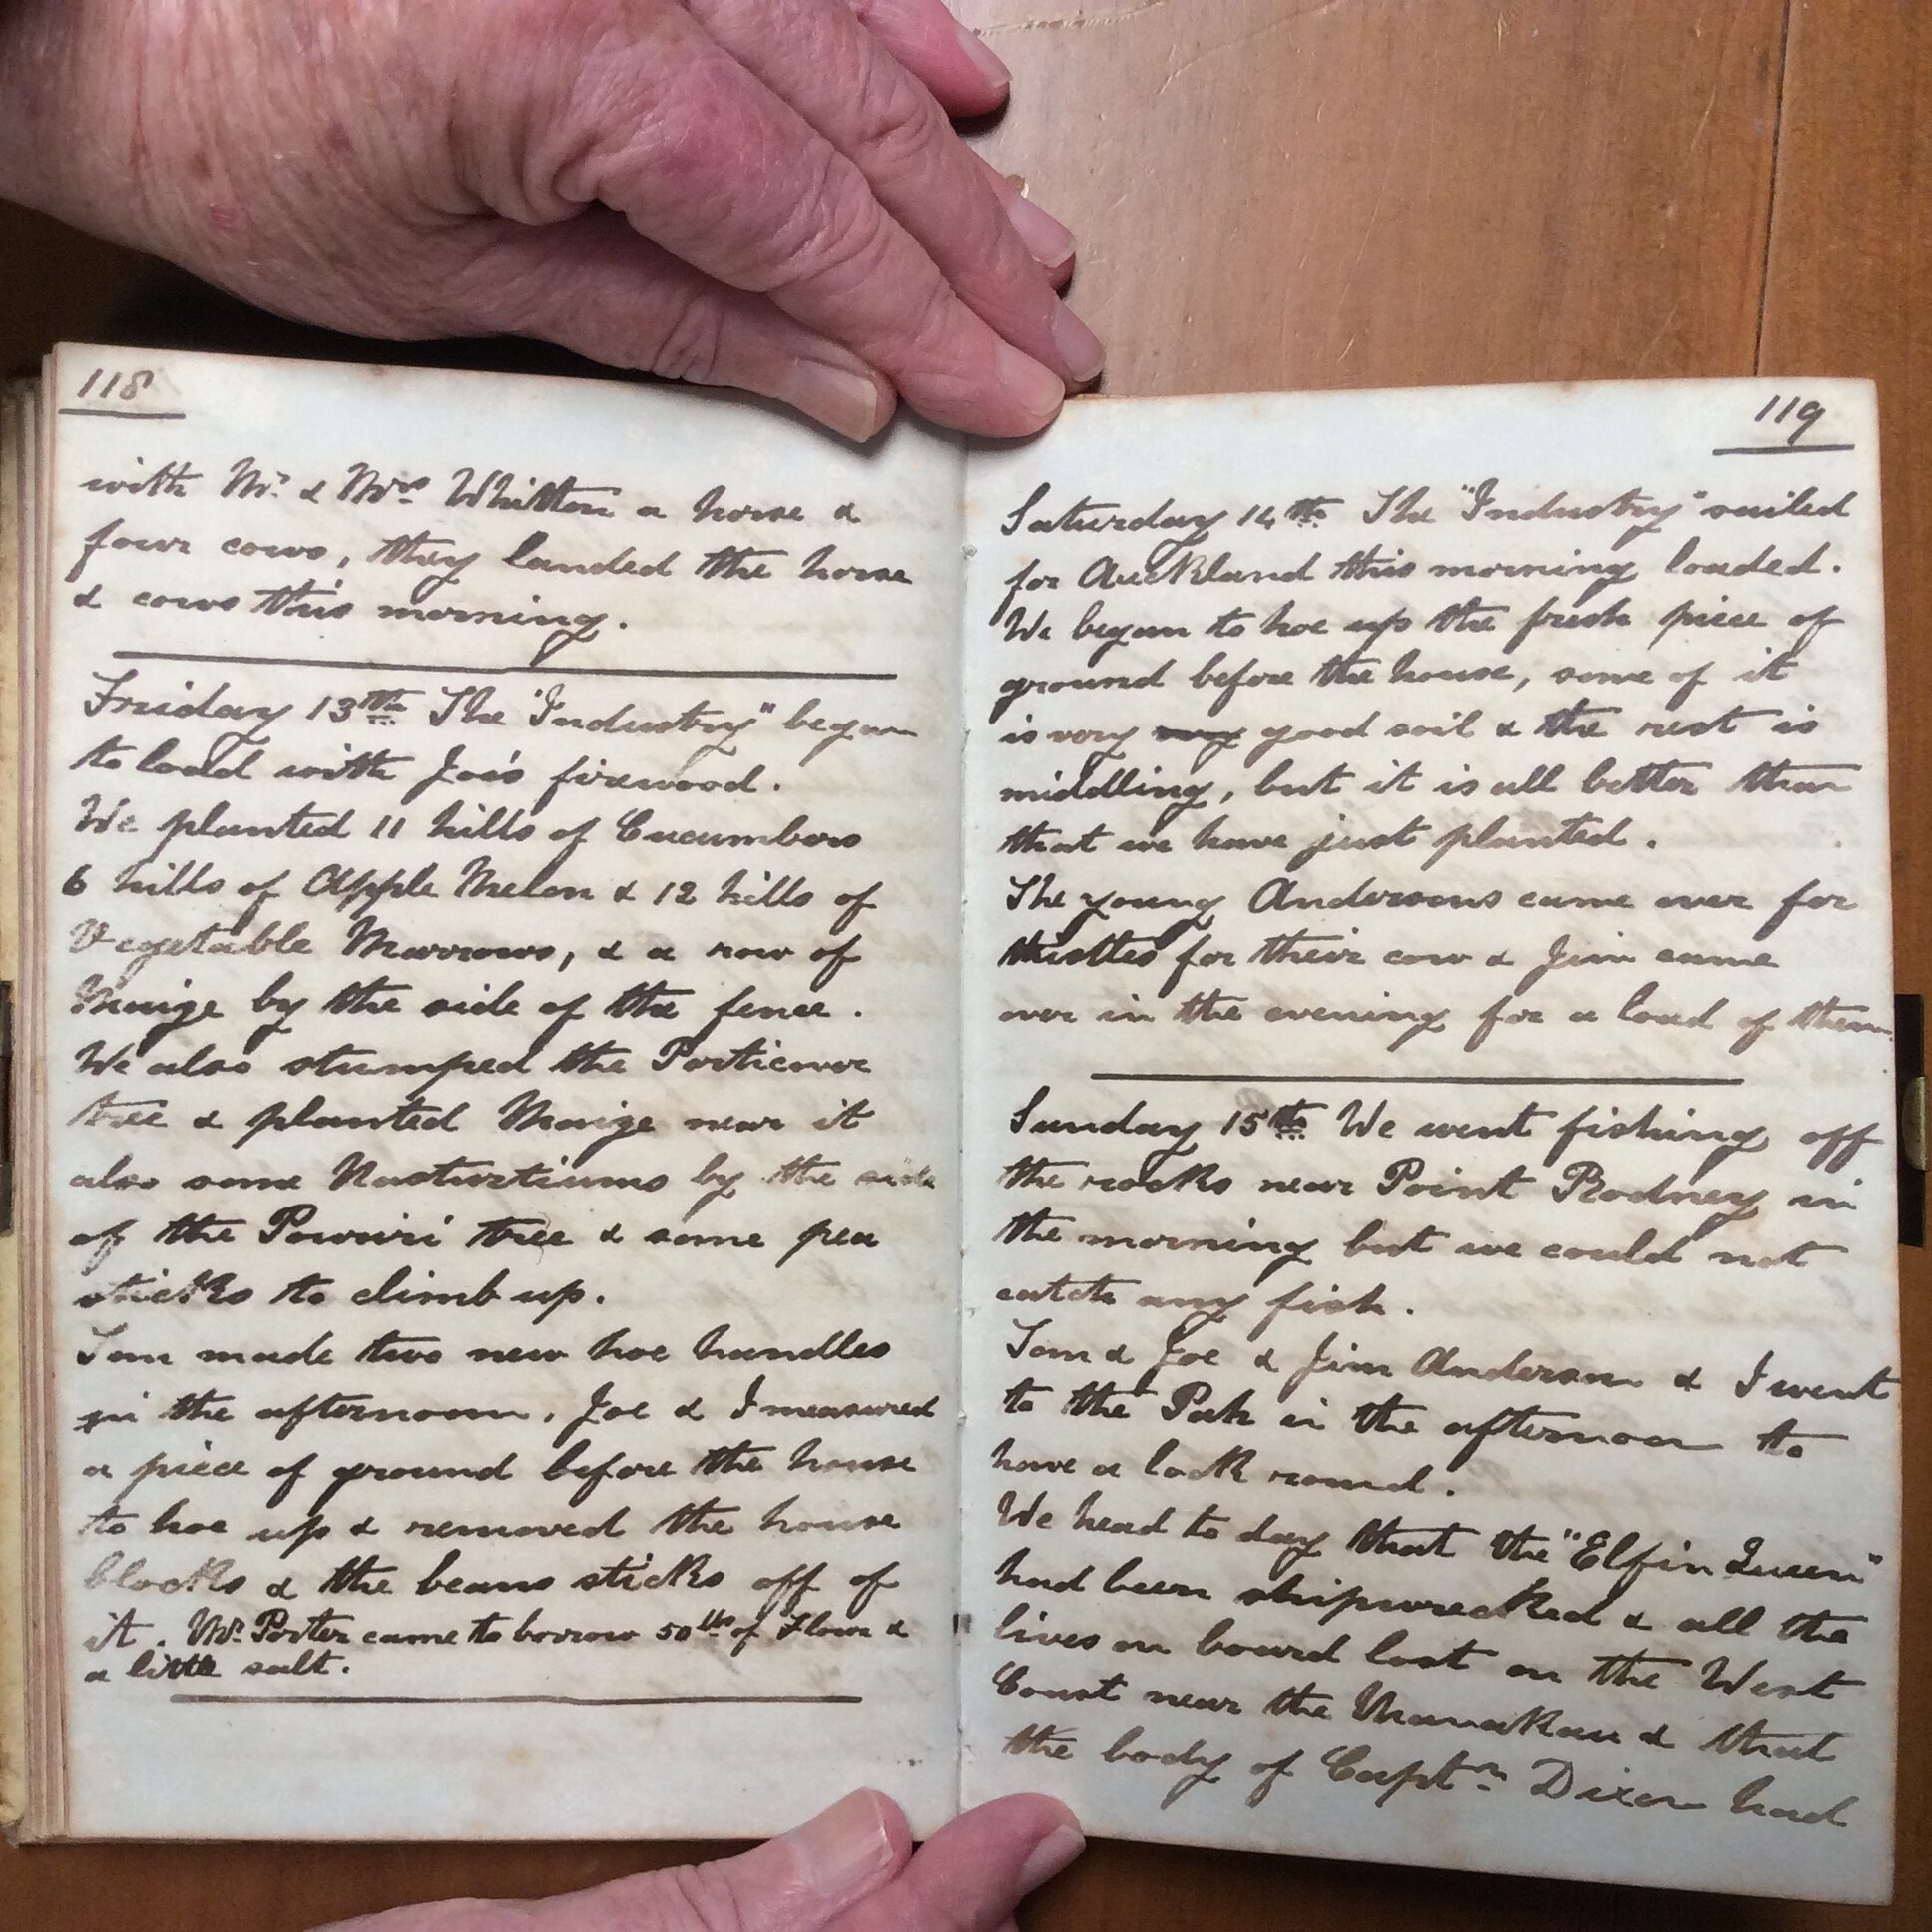 118
with Mr. & Mrs Whitton a horse &
four cows, they landed the horse
& cows this morning.
Friday 13th The "Industry" began
to load with Joe's firewood.
We planted 11 hills of Cucumbers
6 hills of Apple Melon & 12 hills of
Vegetable Marrows, & a row of
Maize by the side of the fence.
We also stumped the Porticover
tree & planted Maize near it
also some Nasturtiums by the side
of the Powriri tree & some pea
sticks to climb up.
Tom made two new hoe handles
in the afternoon. Joe & I measured
a piece of ground before the house
to hoe up & removed the house
blocks & the beans sticks off of
it. Mr. Porter came to borrow 50lbs of Flour &
a little salt.
119
Saturday 14th The "Industry" sailed
for Auckland this morning loaded.
We began to hoe up the fresh piece of
ground before the house, some of it
is very very good soil & the rest is
middling, but it is all better than
that we have just planted.
The young Andersons came over for
thistles for their cow & Jim came
over in the evening for a load of them
Sunday 15th We went fishing off
the rocks near Point Rodney in
the morning but we could not
catch any fish.
Tom & Joe & Jim Anderson & I went
to the Pah in the afternoon to
have a look round.
We head to day that the "Elfin Queen"
had been shipwrecked & all the
lives on board lost on the West
Coast near the Manakau & that
the body of Captn Dixon had